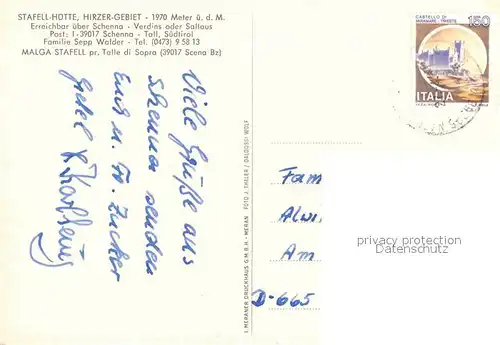 STAFELL-HÜTTE, HIRZER-GEBIET - 1970 Meter ü. d. M.
Erreichbar über Schenna - Verdins oder Saltaus
Post: I-39017 Schenna - Tall, Südtirol
Familie Sepp Walder - Tel. (0473) 9 58 13
MALGA STAFELL pr. Talle di Sopra (39017 Scena Bz)
Viele Grüße aus
Schenna senden
Euch u. Fr. Zucker
Gretel & Karlheinz
I. MERANER DRUCKHAUS G.M.B.H. - MERAN FOTO J. SMILER / DALDOSSI WOLF
CASTELLO DI
MIRAMARE - TRIESTE
150
ITALIA
Fam
Alwi
Am
D-665
privacy protection
watermark